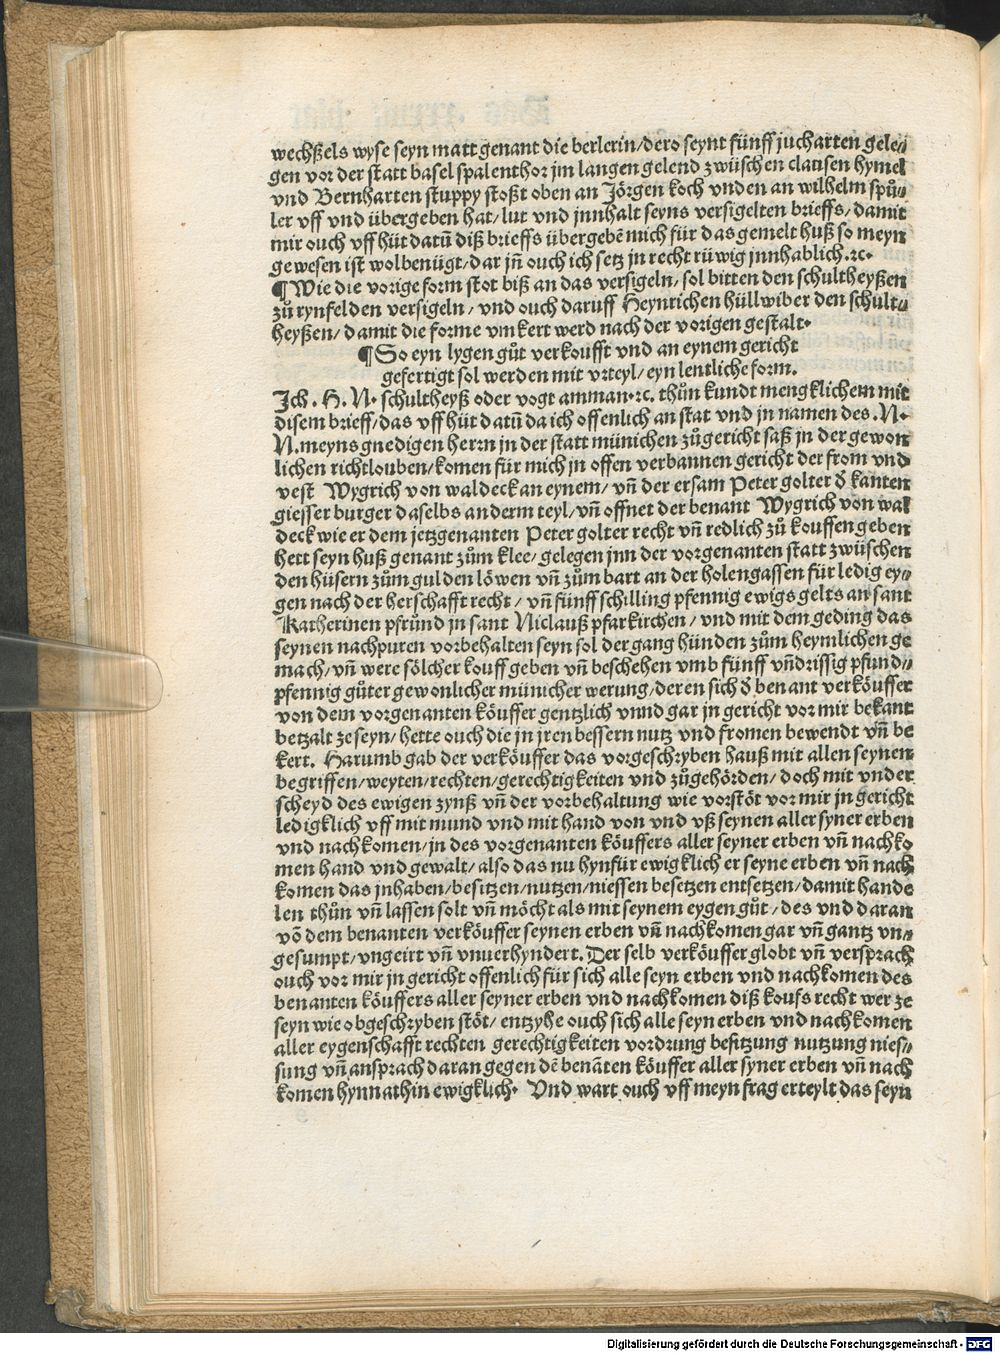 wechßels wyse seyn matt genant die berlerin/dero seynt fünff jucharten gele⸗
gen vor der statt basel spalenthor jm langen gelend zwüschen clausen hymel
vnd Bernharten stuppy stoßt oben an Jörgen koch vnden an wilhelm spuͦ⸗
ler vff vnd übergeben hat/lut vnd jnnhalt seyns versigelten brieffs/damit
mir ouch vff hüt datū diß brieffs übergebē mich für das gemelt huß so meyn
gewesen ist wolbenügt/dar jn̄ ouch ich setz jn recht rüwig jnnhablich.ꝛc.
¶Wie die vorige form stot biß an das versigeln/sol bitten den schultheyßen
zuͦ rynfelden versigeln/vnd ouch daruff Heynrichen hüllwiber den schult⸗
heyßen/damit die forme vmkert werd nach der vorigen gestalt.
¶So eyn lygen guͦt verkoufft vnd an eynem gericht
gefertigt sol werden mit vrteyl/eyn lentliche form.
Jch.H.N. schultheyß oder vogt amman.ꝛc. thuͦn kundt mengklichem mit
disem brieff/das vff hüt datū da ich offenlich an stat vnd jn namen des.N.
N.meyns gnedigen herrn jn der statt münichen zuͦgericht saß jn der gewon
lichen richtlouben/komen für mich jn offen verbannen gericht der from vnd
vest Wygrich von waldeck an eynem/vn̄ der ersam Peter golter d̄ kanten
giesser burger daselbs an derm teyl/vn̄ offnet der benant Wygrich von wal
deck wie er dem jetzgenanten Peter golter recht vn̄ redlich zuͦ kouffen geben
hett seyn huß genant zuͦm klee/gelegen jnn der vorgenanten statt zwüschen
den hüsern zuͦm gulden löwen vn̄ zuͦm bart an der holengassen für ledig ey⸗
gen nach der herschafft recht/vn̄ fünff schilling pfennig ewigs gelts an sant
Katherinen pfruͦnd jn sant Niclauß pfarkirchen/vnd mit dem geding das
seynen nachpuren vorbehalten seyn sol der gang hünden zuͦm heymlichen ge
mach/vn̄ were sölcher kouff geben vn̄ beschehen vmb fünff vn̄drissig pfund⸗
pfennig guͦter gewonlicher münicher werung/deren sich d̄ benant verköuffer
von dem vorgenanten köuffer gentzlich vnnd gar jn gericht vor mir bekant
betzalt ze seyn/hette ouch die jn jren bessern nutz vnd fromen bewendt vn̄ be
kert. Harumb gab der verköuffer das vorgeschryben hauß mit allen seynen
begriffen/weyten/rechten/gerechtigkeiten vnd zuͦgehörden/doch mit vnder
scheyd des ewigen zynß vn̄ der vorbehaltung wie vorstöt vor mir jn gericht
ledigklich vff mit mund vnd mit hand von vnd vß seynen aller syner erben
vnd nachkomen/jn des vorgenanten köuffers aller seyner erben vn̄ nachko
men hand vnd gewalt/also das nu hynfür ewigklich er seyne erben vn̄ nach
komen das jnhaben/besitzen/nutzen/niessen besetzen entsetzen/damit hande
len thuͦn vn̄ lassen solt vn̄ möcht als mit seynem eygen guͦt/des vnd daran
vō dem benanten verköuffer seynen erben vn̄ nachkomen gar vn̄ gantz vn⸗
gesumpt/vngeirt vn̄ vnuerhyndert. Der selb verköuffer globt vn̄ versprach
ouch vor mir jn gericht offenlich für sich alle seyn erben vnd nachkomen des
benanten köuffers aller seyner erben vnd nachkomen diß koufs recht wer ze
seyn wie obgeschryben stöt/entzyhe ouch sich alle seyn erben vnd nachkomen
aller eygenschafft rechten gerechtigkeiten vordrung besitzung nutzung nies⸗
sung vn̄ ansprach daran gegen dē benāten köuffer aller syner erben vn̄ nach
komen hynnathin ewigklich. Vnd wart ouch vff meyn frag erteylt das seyn
Digitalisierung gefördert durch die Deutsche Forschungsgemeinschaft - DFG